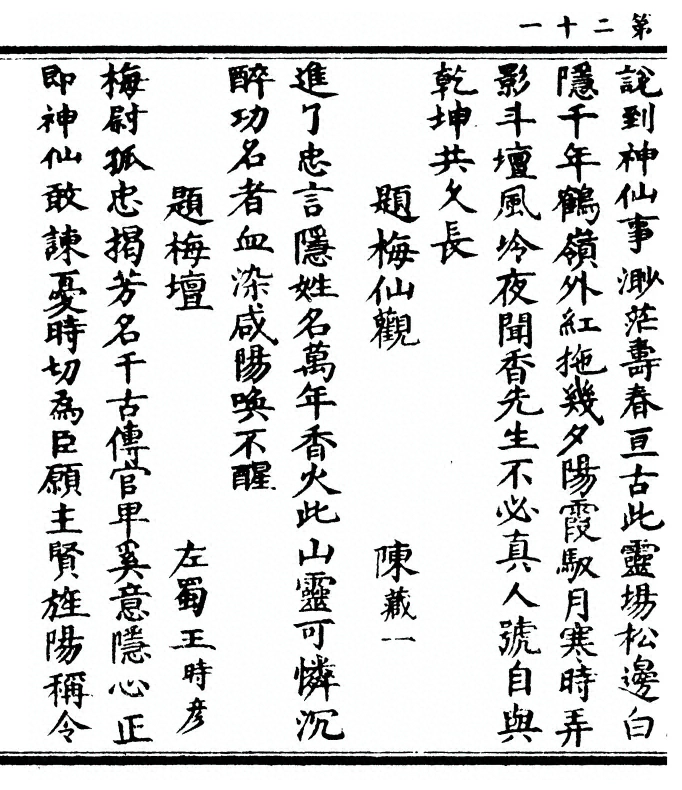 第二十一
說到神仙事渺茫壽春亘古此靈場松邊白
隱千年鶴嶺外紅拖幾夕陽霞馭月寒時弄
影斗壇風冷夜聞香先生不必真人號自與
乾坤共久長
題梅仙觀 陳藏一
進了忠言隱姓名萬年香火此山靈可憐沉
醉功名者血染咸陽喚不醒
題梅壇 左蜀王時彥
梅尉孤忠揭芳名千古傳官卑奚意隱心正
即神仙敢諫憂時切為臣願主賢旌陽稱令